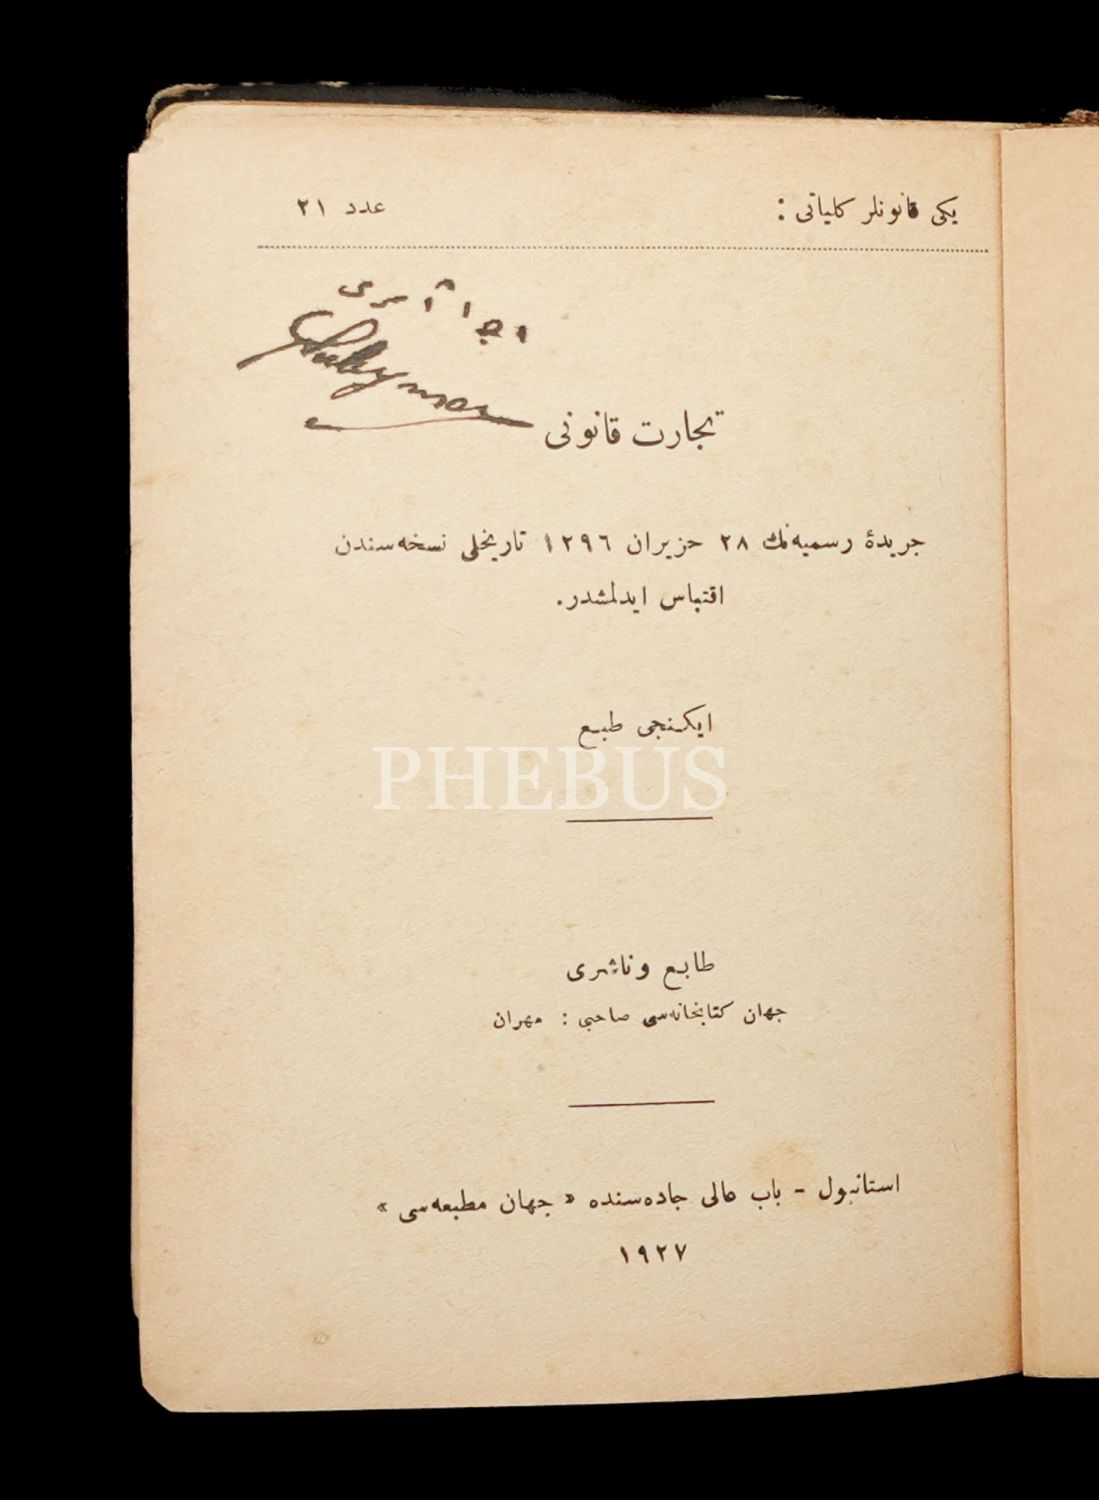 یكی قانونلر كلیاتی :
عدد ٢١
تجارت قانونی
جریدهٔ رسمیه‌نك ٢٨ حزیران ١٢٩٦ تاریخلی نسخه‌سندن
اقتباس ایدلمشدر.
ایكنجی طبع
PHEBUS
طابع وناشری
جهان كتابخانه‌سی صاحبی : مهران
استانبول - باب عالی جاده‌سنده « جهان مطبعه‌سی »
١٩٢٧